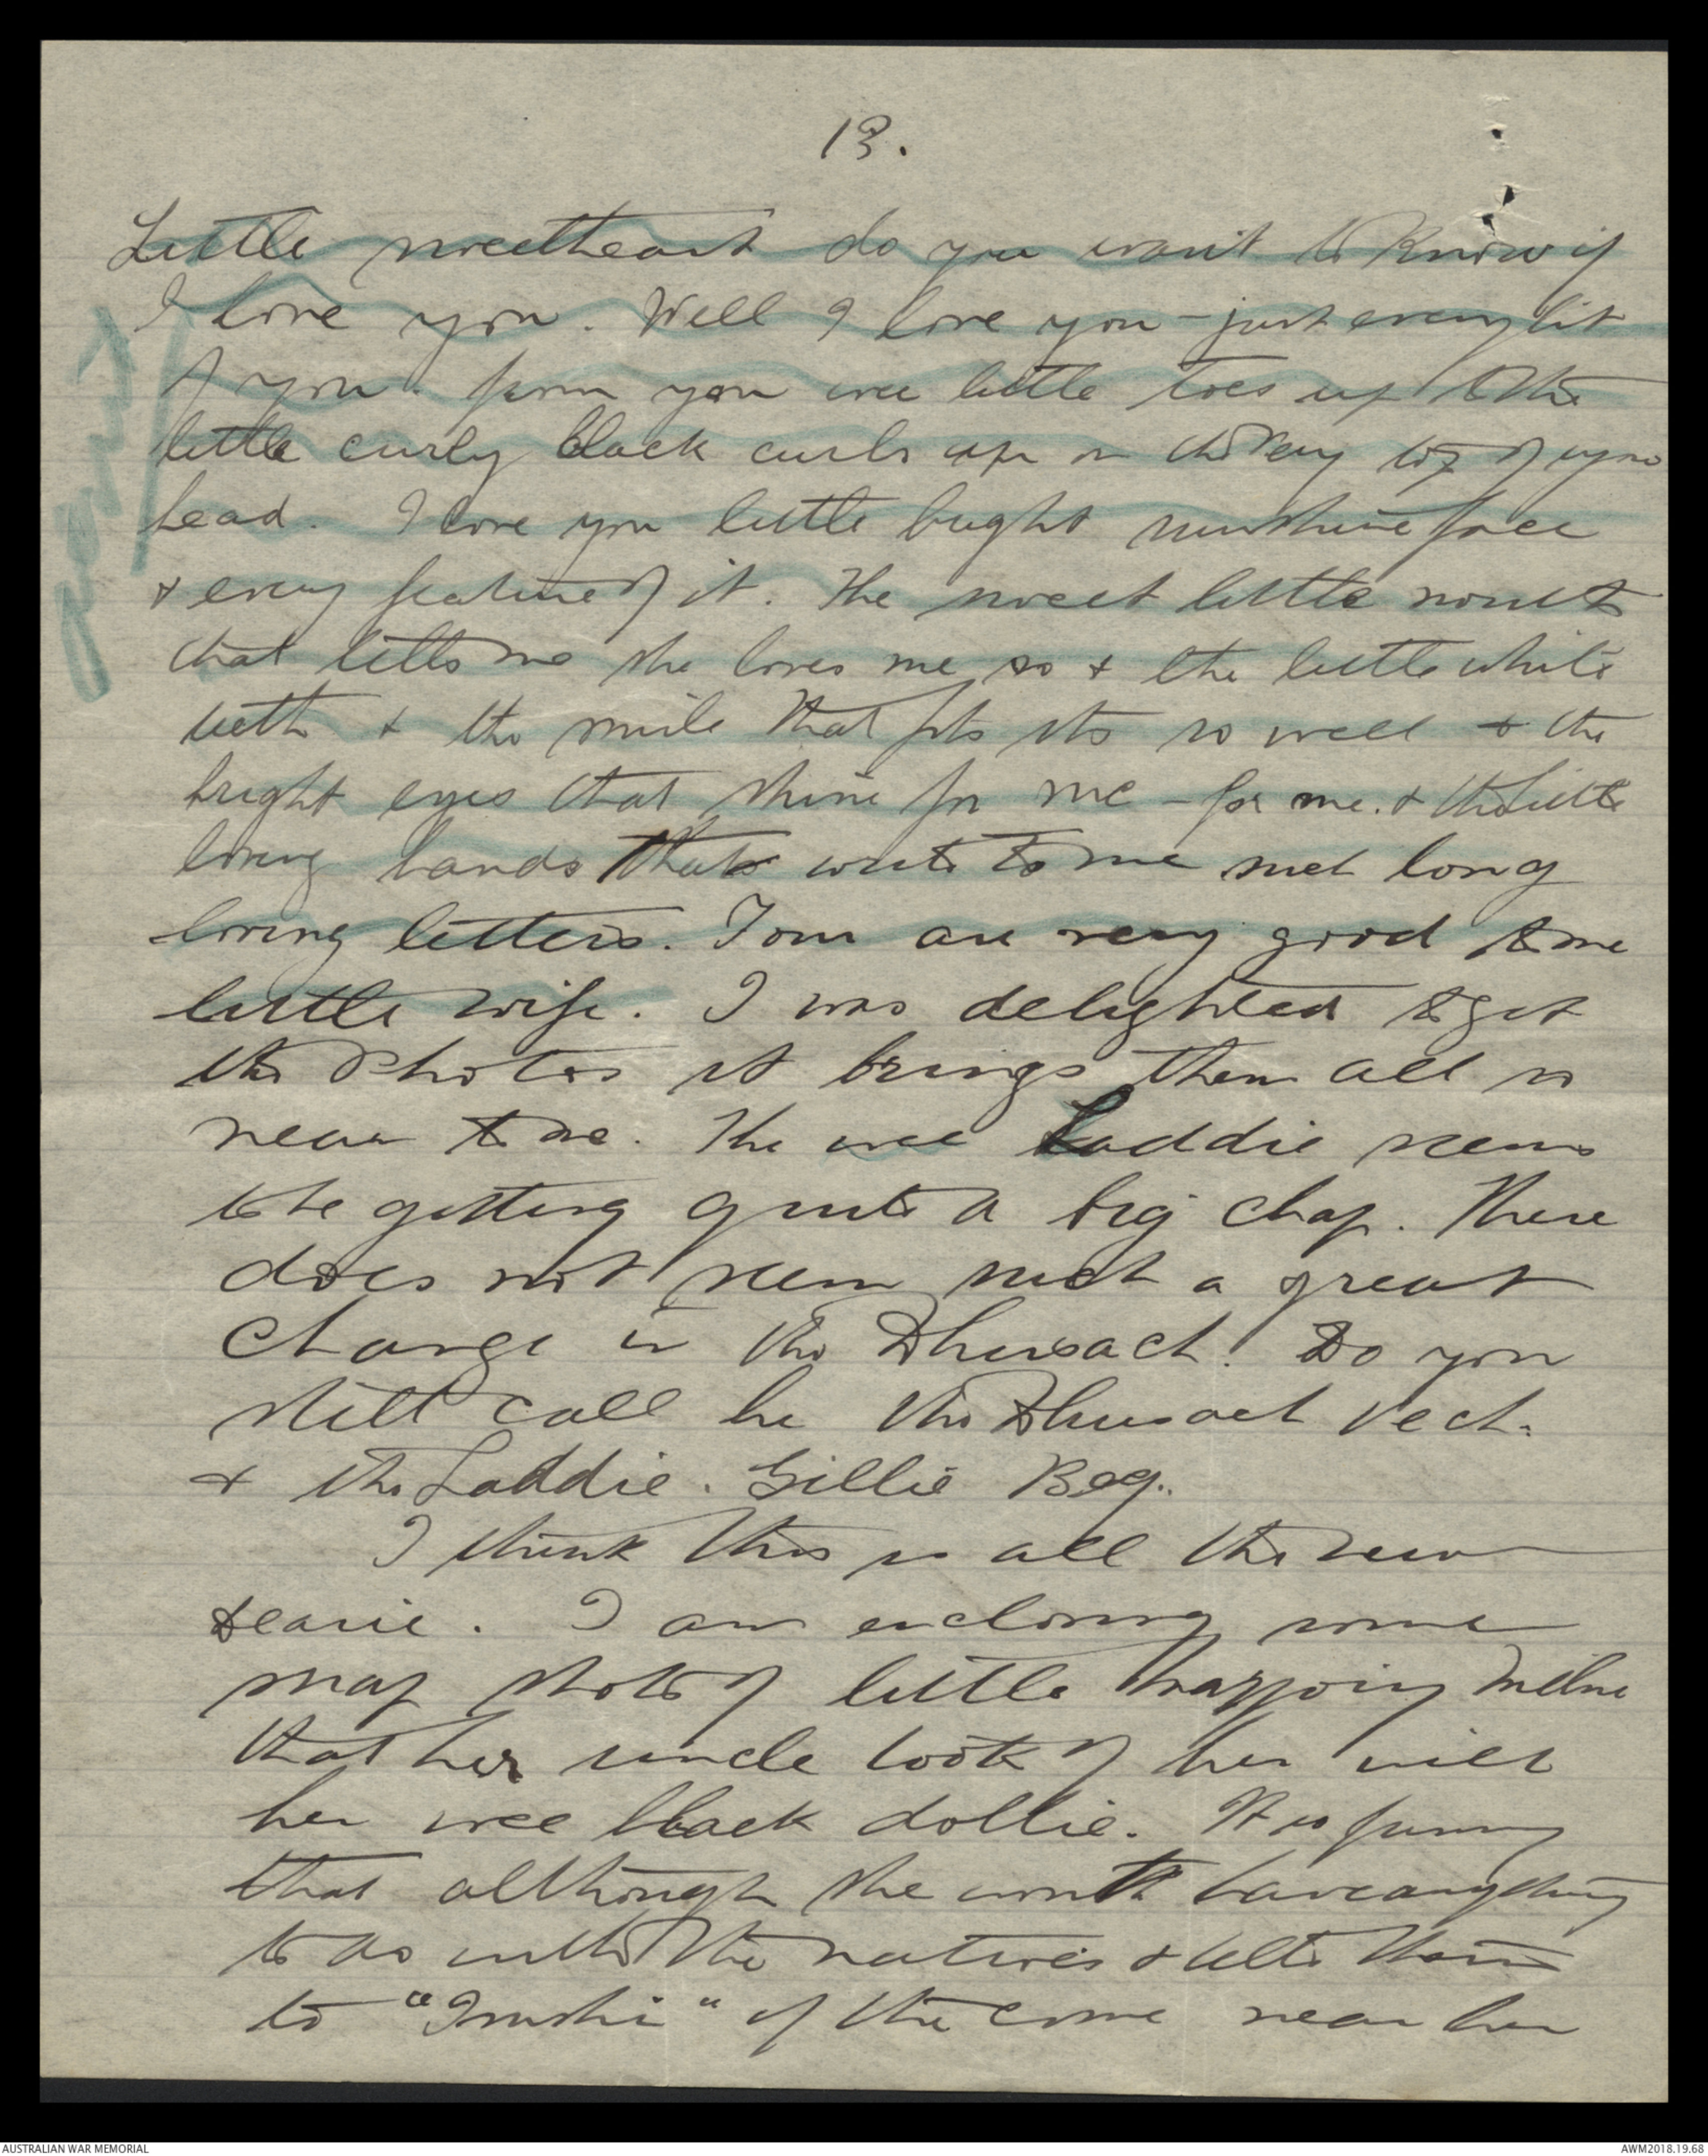 13.
Little sweetheart do you want to Know if
I love you. Well I love you - just every bit
of you. from you wee little toes up to the
little curly black curls up on the very top of your
head. I love you little bright sunshine face
& every feature of it. The sweet little mouth
that tells me she loves me so & the little white
teeth & the smile that fits its so well & the
bright eyes that shine for me - for me. & the little
loving hands that write to me such long
loving letters. You are very good to me
little wife. I was delighted to get
the Photos it brings them all so
near to me. The wee Laddie seems
to be getting quite a big chap. There
does not seem such a great
change in the Dhusach. Do you
still call he the Dhusach Vech.
& the Laddie. Gillie Beg.
I think this is all the news
dearie. I am enclosing some
snap shots of little Milne
that her uncle took of her with
her wee black dollie. It is funny
that although she won't have anything
to do with the natives & tells them
to "Imshi" if the come near her
AUSTRALIAN WAR MEMORIAL
AWM2018.19.68